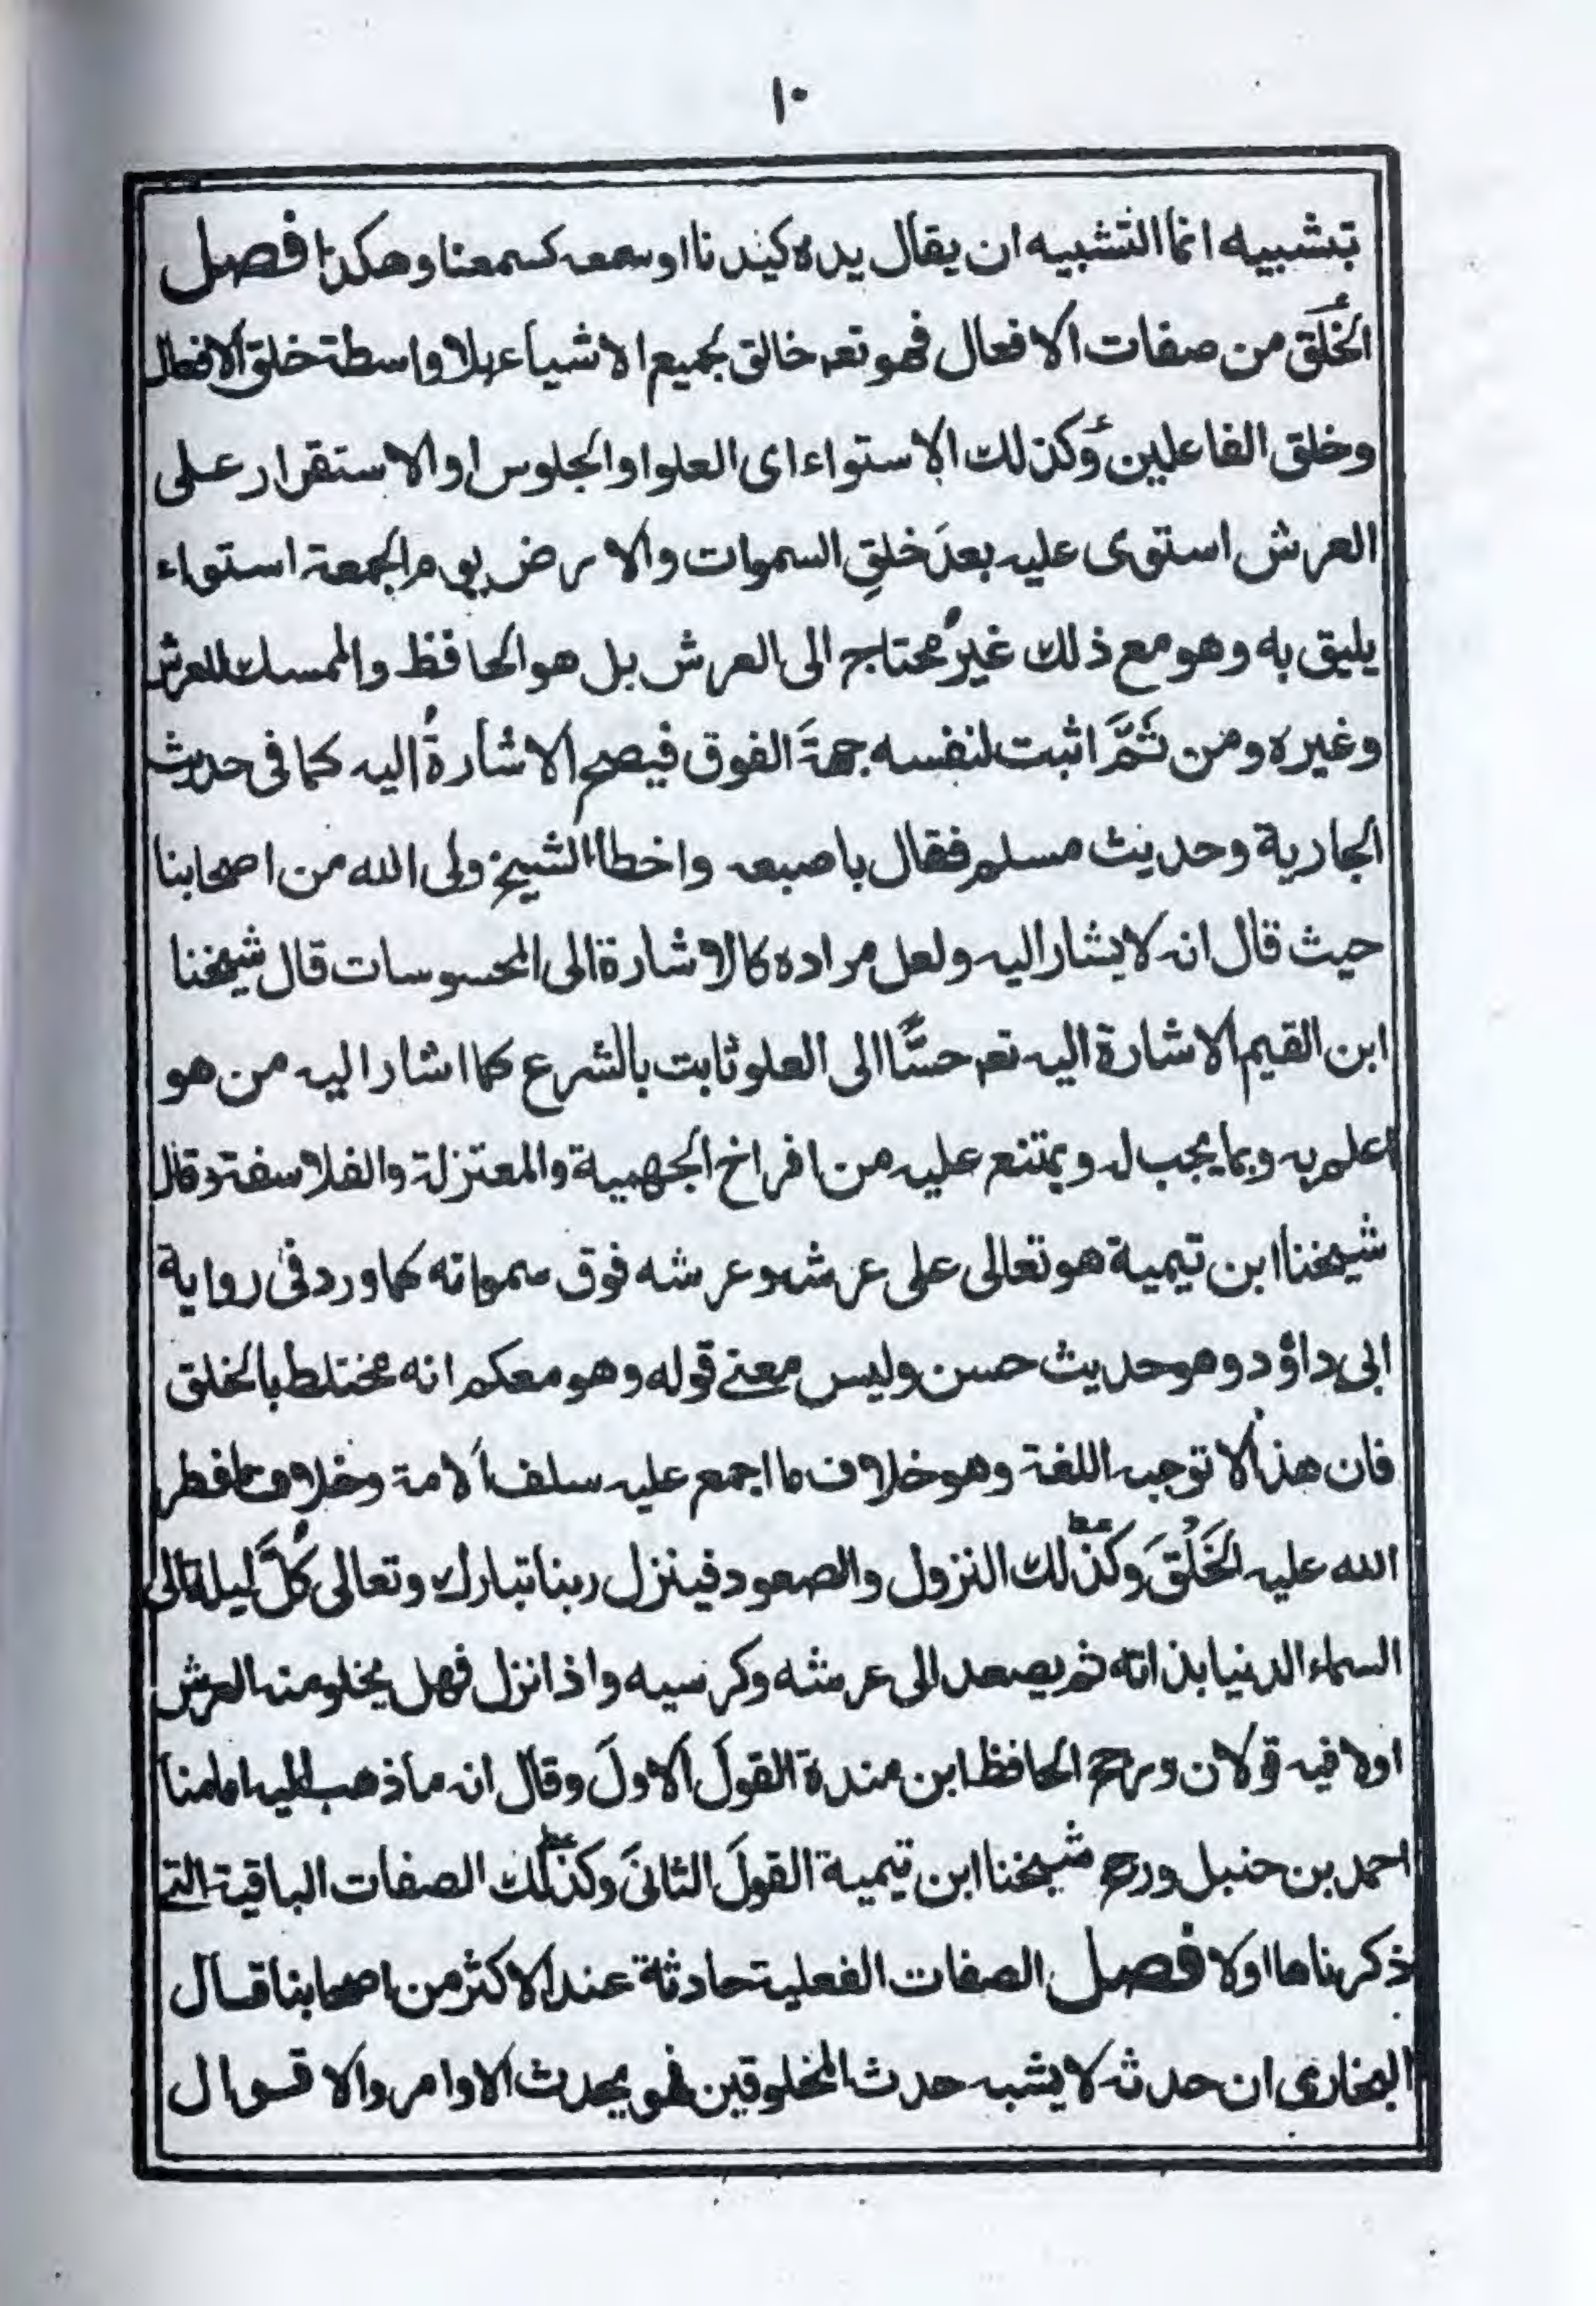 ١٠
بتشبيه انما التشبيه ان يقال يده كيدنا او سمعه كسمعنا وهكذا فصل
الخَلق من صفات الافعال فهو تعہ خالق لجميع الاشياء بلا واسطة خلق الافعال
وخلق الفاعلين وكذلك الاستواء اى العلو او الجلوس او الاستقرار على
العرش استوى عليه بعدَ خلقِ السموات والارض يوم الجمعة استواء
يليق به وهو مع ذلك غيرُ محتاج الى العرش بل هو الحافظ والممسك للعرش
وغيره ومن ثَمَّ اثبت لنفسه جهةَ الفوق فيصح الاشارةُ اليه كما فى حديث
الجارية وحديث مسلم فقال باصبعه واخطأ الشيخ ولى الله من اصحابنا
حيث قال انه لا يشار اليه ولعل مراده كالاشارة الى المحسوسات قال شيخنا
ابن القيم الاشارة اليه تعہ حسًّا الى العلو ثابت بالشرع كما اشار اليه من هو
اعلم به وبما يجب له ويمتنع عليه من افراخ الجهمية والمعتزلة والفلاسفة وقال
شيخنا ابن تيمية هو تعالى على عرشه وعرشه فوق سمواته كما ورد فى رواية
ابى داؤد وهو حديث حسن وليس معنے قوله وهو معكم انه مختلط بالخلق
فان هذا لا توجبه اللغة وهو خلاف ما اجمع عليه سلف الامة وخلاف ما فطر
الله عليه الخَلْقَ وكذلك النزول والصعود فينزل ربنا تبارك وتعالى كُلَّ ليلة الى
السماء الدنيا بذاته ثم يصعد الى عرشه وكرسيه واذا نزل فهل يخلو منه العرش
اولا فيه قولان ورجح الحافظ ابن مندة القولَ الاولَ وقال انه ما ذهب اليه امامنا
احمد بن حنبل ورجح شيخنا ابن تيمية القولَ الثانىَ وكذلك الصفات الباقية التے
ذكرناها اولا فصل الصفات الفعلية حادثة عند الاكثر من اصحابنا قال
البخارى ان حدثه لا يشبه حدث المخلوقين فهو يحدث الاوامر والاقوال